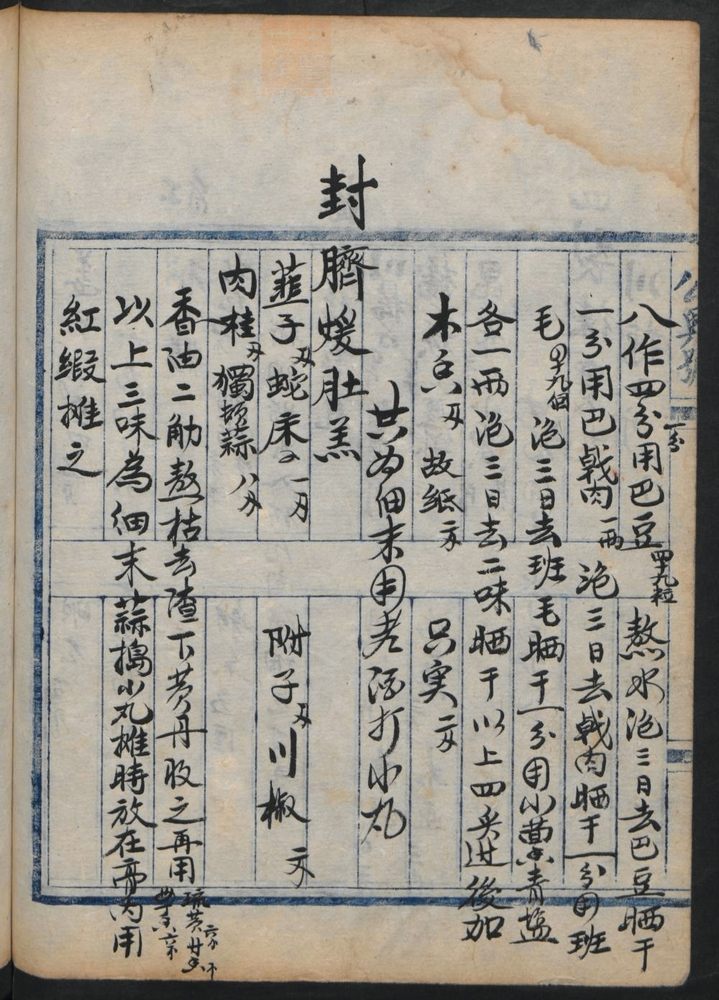 八作四分一分用巴豆四十九粒熬水泡三日去巴豆晒干
一分用巴戟肉一兩泡三日去戟肉晒干一分用班
毛四十九個泡三日去班毛晒干一分用小茴青盐
各一兩泡三日去二味晒干以上四炙过後加
木香 故纸 只实
共为细末用老酒打小丸
封臍煖肚羔
韮子 蛇床 附子 川椒
肉桂 獨頭蒜
香油二觔熬枯去渣下黄丹收之再用硫黄
以上三味為细末蒜搗小丸摊時放在膏内用
紅緞摊之